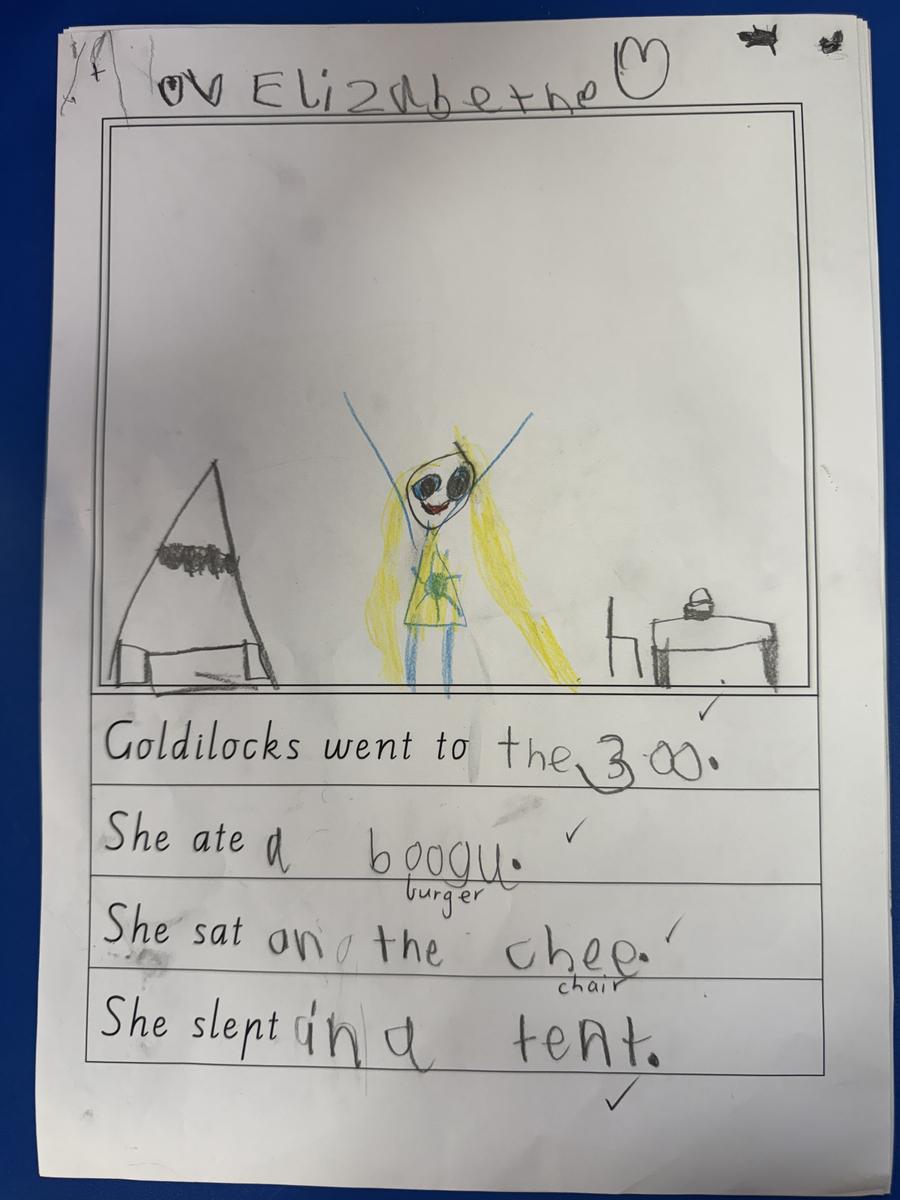 Elizabethe
Goldilocks went to the 3.00.
She ate a boogu.
burger
She sat on the chee.
chair
She slept in a tent.